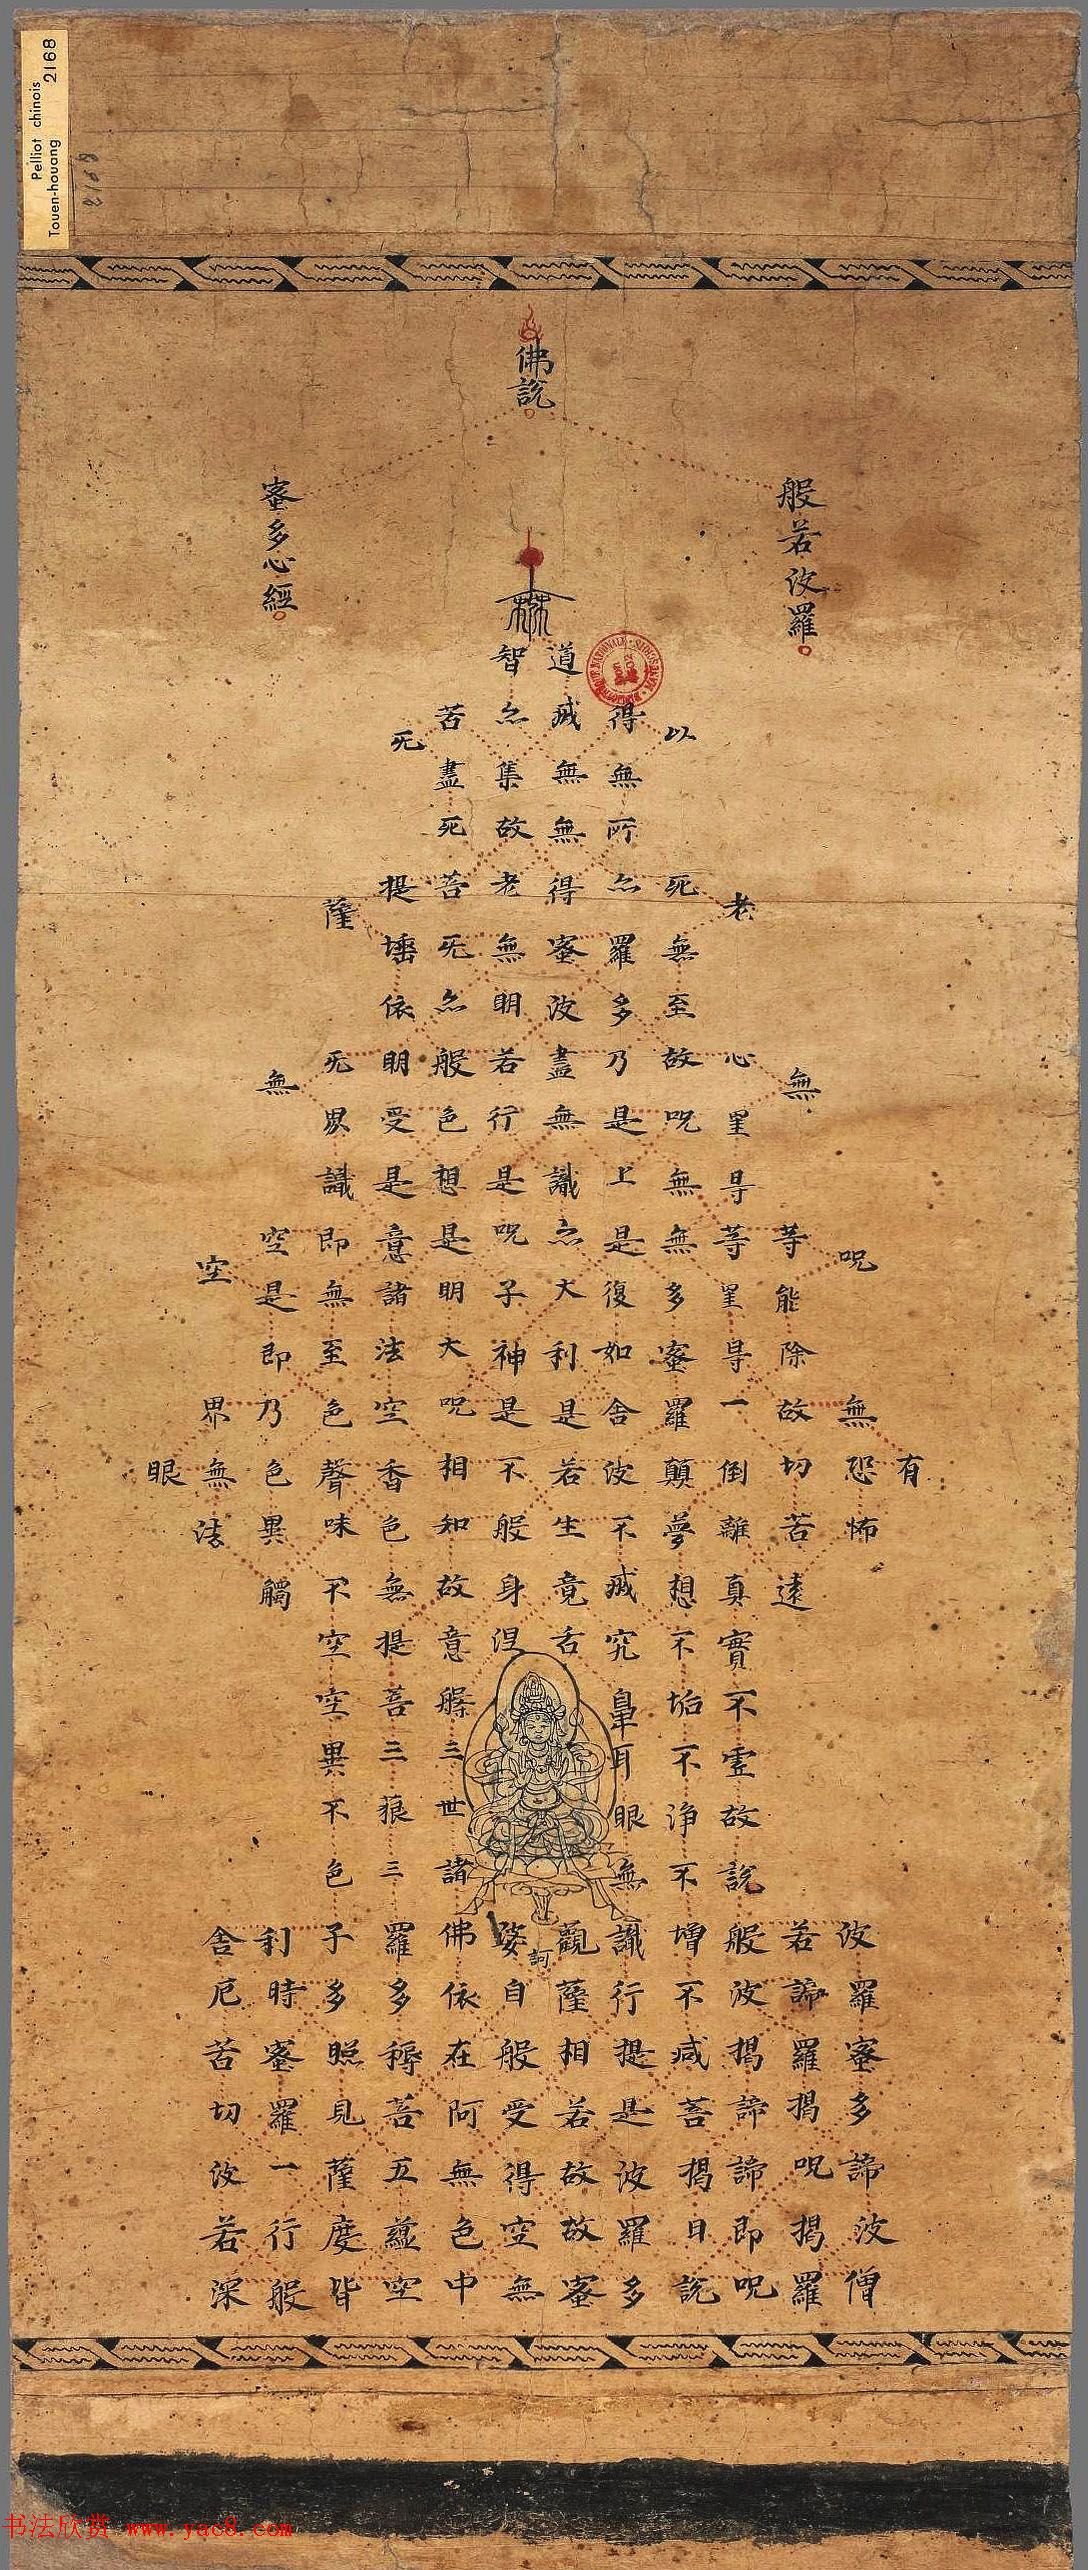 Pelliot chinois
Touen-houang 2168
佛說
般若波羅
蜜多心經
有
呪無恐怖波羅蜜多諦波僧
無等能除故切苦遠若諦羅揭呪揭羅
老心罣㝵等罣㝵一倒離真實不虛故說般波揭諦諦即呪
以死無至故呪無無多蜜羅顛夢想不垢不淨不增不減菩揭曰說
得無所亦羅多乃是上是復如舍波不滅究鼻耳眼無識行提是波羅多
道滅無無得蜜波盡無識亦大利是若生竟舌觀薩相若故故蜜
訶
智亦集故老無明若行是呪子神是不般身涅婆自般受得空無
苦盡死菩无亦般色想是明大呪相知故意槃三世諸佛依在阿無色中
无提埵依明受是意諸法空香色無提菩三藐三羅多耨菩五蘊空
薩无界識即無至色聲味不空空異不色子多照見薩度皆
無空是即乃色異觸利時蜜羅一行般
空界無法舍厄苦切波若深
眼
书法欣赏 www.yac8.com